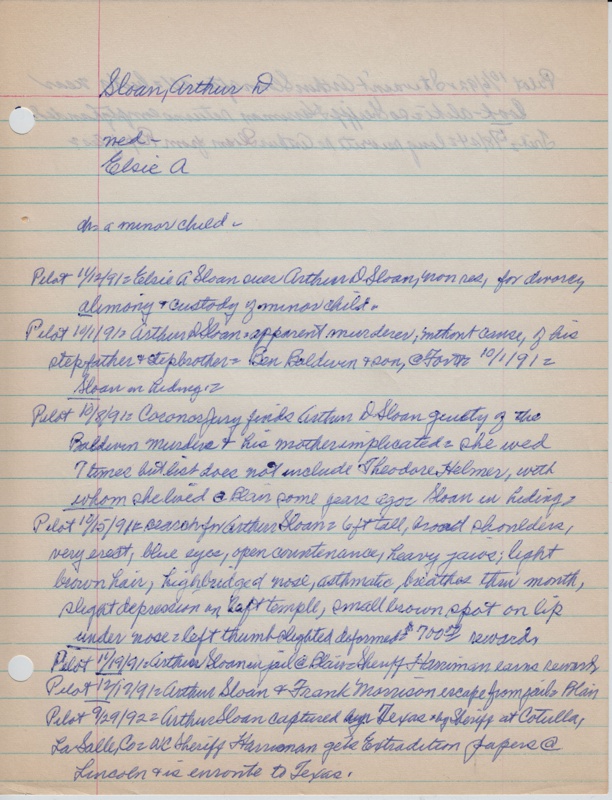 Sloan, Arthur D
wed -
Elsie A
d = a minor child -
Pilot 11/12/91 = Elsie A Sloan sues Arthur D Sloan, non res, for divorce,
alimony & custody of minor child.
Pilot 10/1/91 = Arthur D Sloan = apparent murderer, without cause, of his
stepfather & stepbrother = Ben Baldwin & son, @ 10/1/91 =
Sloan in hiding =
Pilot 10/8/91 = Coronor Jury finds Arthur D Sloan guilty of the
Baldwin murders & his mother implicated = she wed
7 times but list does not include Theodore Helmer, with
whom she lived @ Blair some years ago = Sloan in hiding =
Pilot 10/15/91 = search for Arthur Sloan = 6 ft tall, broad shoulders,
very erect, blue eyes, open countenance, heavy jaws; light
brown hair, high bridged nose, asthmatic, breathes thru mouth,
slight depression on left temple, small brown spot on lip
under nose = left thumb slighted deformed = $700.00 rewards
Pilot 11/19/91 = Arthur Sloan in jail @ Blair = Sheriff Harriman earns rewards
Pilot 12/17/91 = Arthur Sloan & Frank Morrison escape from jail = Blair
Pilot 9/29/92 = Arthur Sloan captured Texas by Sheriff at Cotulla,
La Salle, Co = WC Sheriff Harriman gets Extradition papers @
Lincoln & is enroute to Texas.